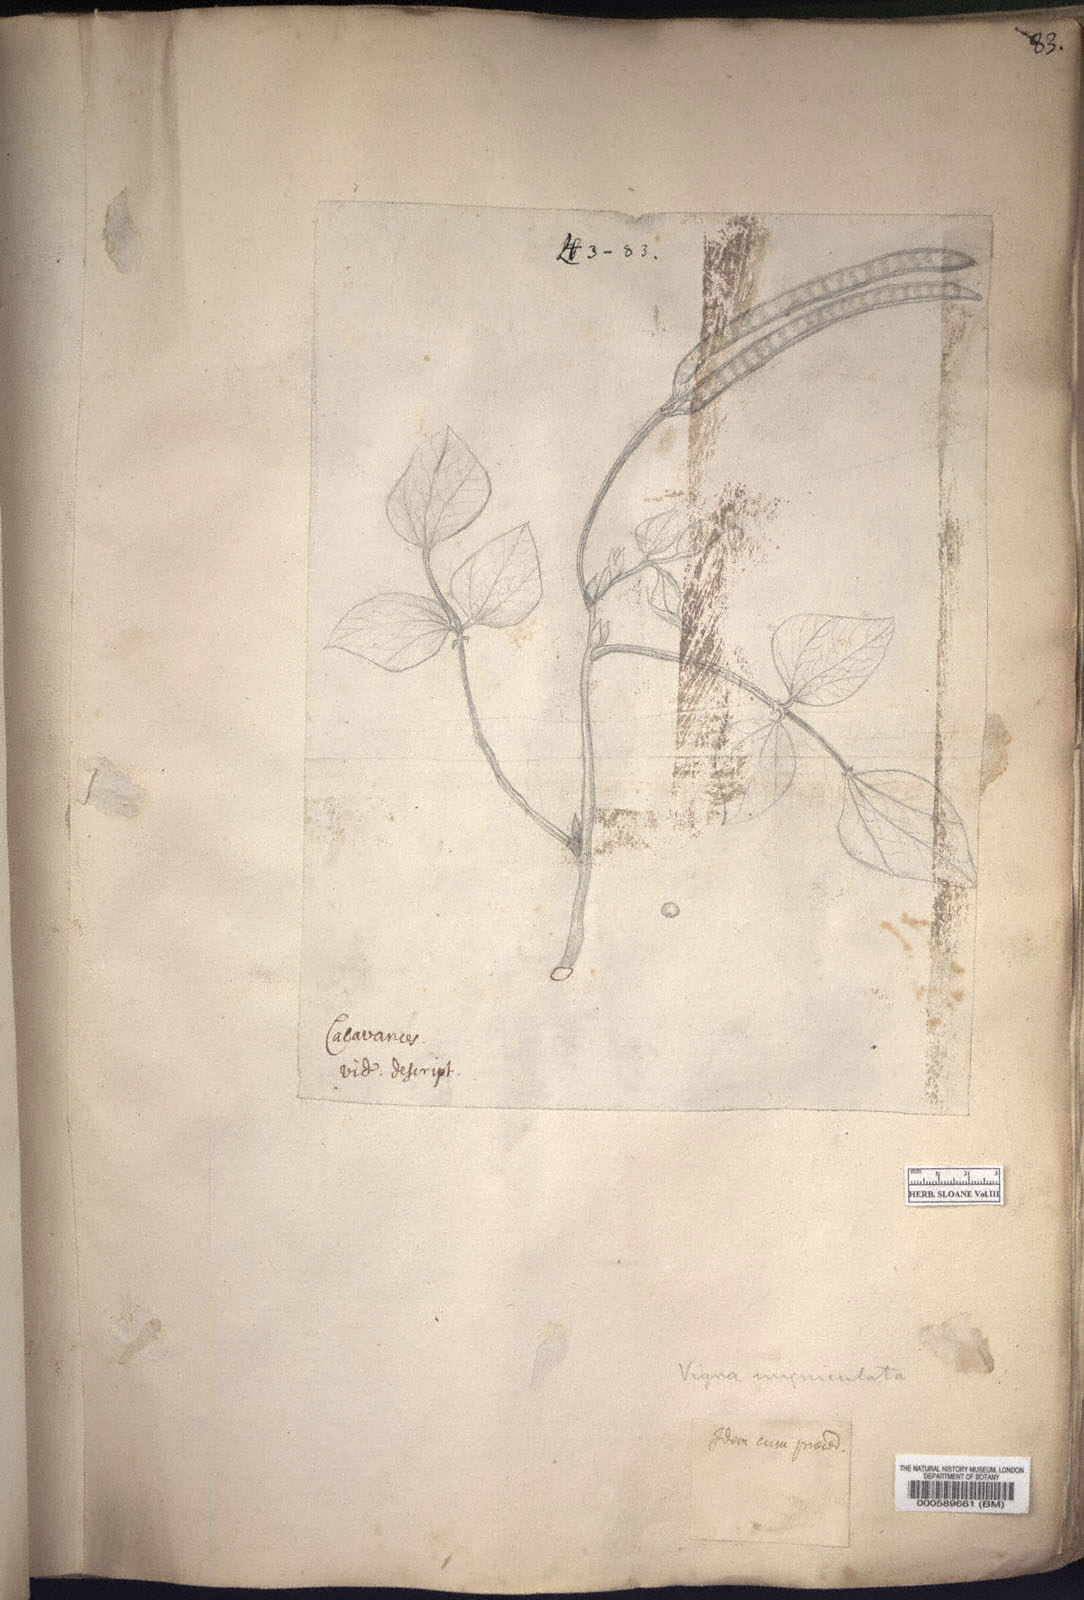 83.
3-83.
Calavances
vid. descript.
mm 1 2 3
HERB. SLOANE Vol.III
Vigna unguiculata
Idem cum præced.
THE NATURAL HISTORY MUSEUM, LONDON
DEPARTMENT OF BOTANY
000589661 (BM)